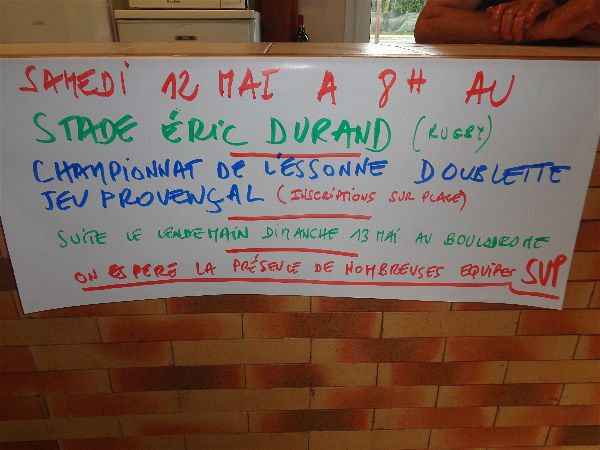 SAMEDI 12 MAI A 8H AU
STADE ÉRIC DURAND (RUGBY)
CHAMPIONNAT DE L'ESSONNE DOUBLETTE
JEU PROVENÇAL (INSCRIPTIONS SUR PLACE)
SUITE LE LENDEMAIN DIMANCHE 13 MAI AU BOULODROME
ON ESPERE LA PRÉSENCE DE NOMBREUSES EQUIPES SVP